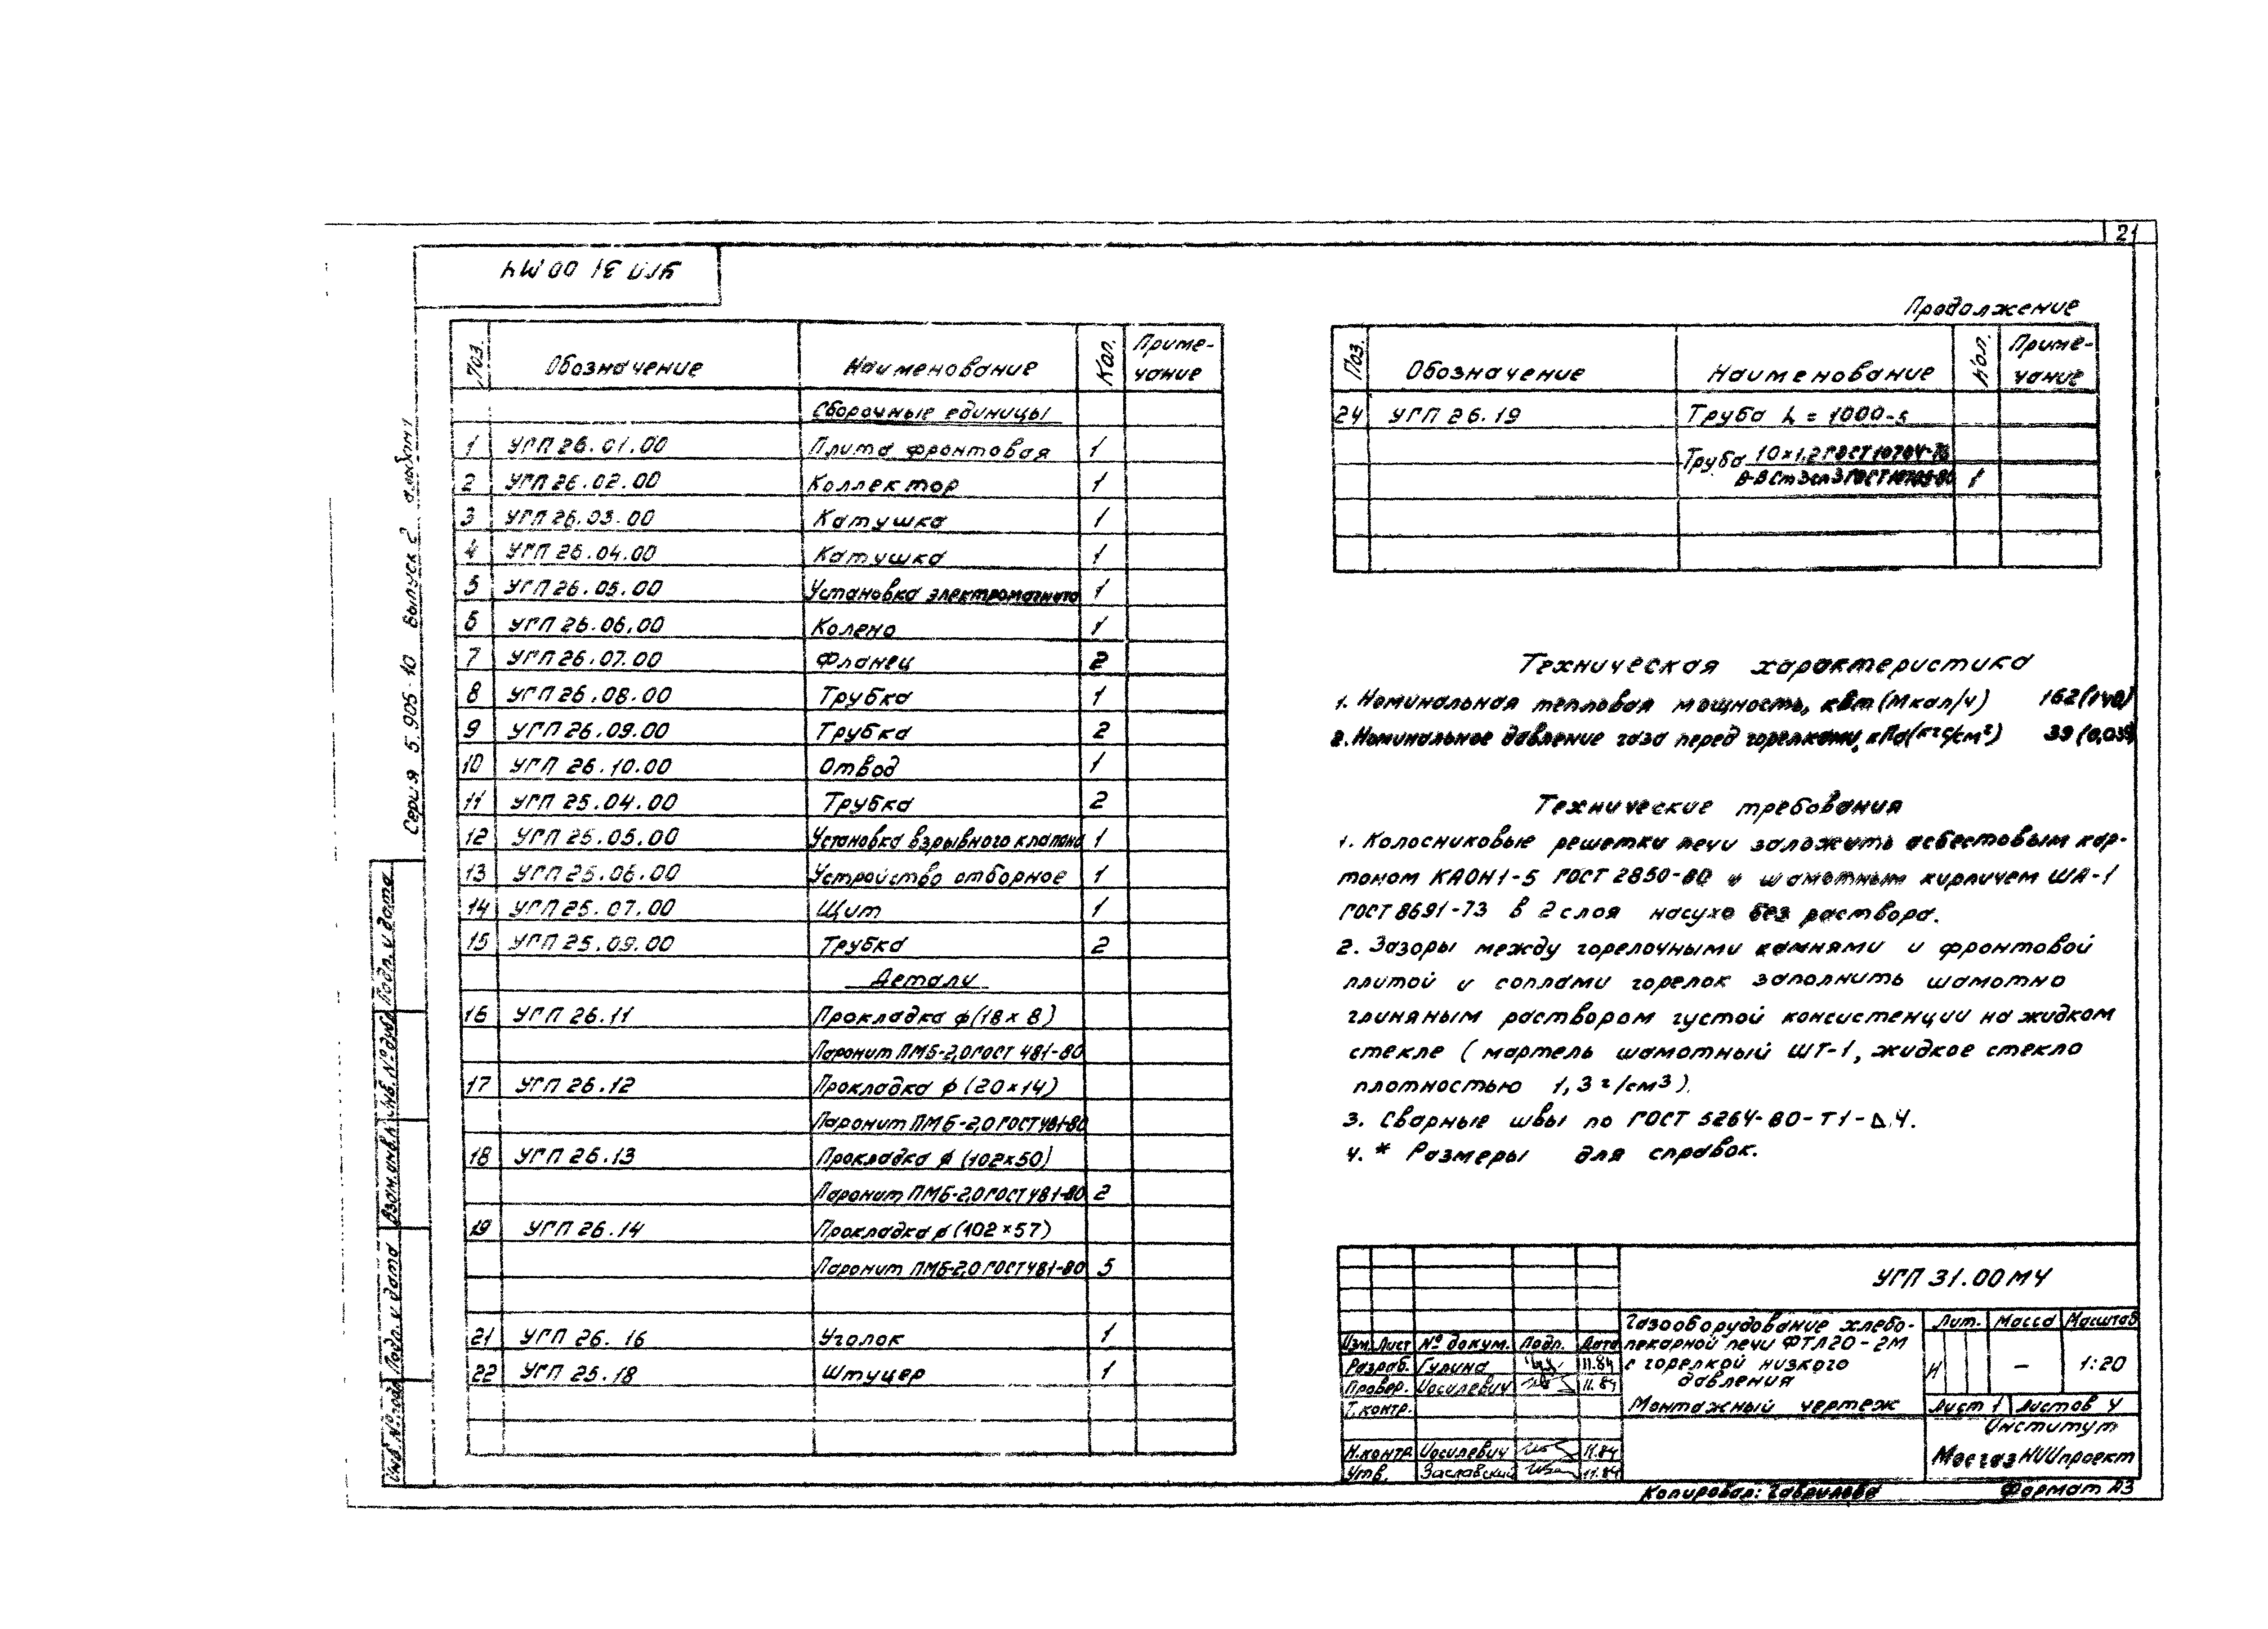 21
УГП 31.00МЧ
Серия 5.905-10 Выпуск 2
Поз. Обозначение Наименование Кол. Приме-
чание
Сборочные единицы
1 УГП 26.01.00 Плита фронтовая 1
2 УГП 26.02.00 Коллектор 1
3 УГП 26.03.00 Катушка 1
4 УГП 26.04.00 Катушка 1
5 УГП 26.05.00 Установка электромагнита 1
6 УГП 26.06.00 Колено 1
7 УГП 26.07.00 Фланец 2
8 УГП 26.08.00 Трубка 1
9 УГП 26.09.00 Трубка 2
10 УГП 26.10.00 Отвод 1
11 УГП 25.04.00 Трубка 2
12 УГП 25.05.00 Установка взрывного клапана 1
13 УГП 25.06.00 Устройство отборное 1
14 УГП 25.07.00 Щит 1
15 УГП 25.09.00 Трубка 2
Детали
16 УГП 26.11 Прокладка ф(18×8)
Паронит ПМБ-2,0 ГОСТ 481-80
17 УГП 26.12 Прокладка ф(20×14)
Паронит ПМБ-2,0 ГОСТ 481-80
18 УГП 26.13 Прокладка ф(102×50)
Паронит ПМБ-2,0 ГОСТ 481-80 2
19 УГП 26.14 Прокладка ф(102×57)
Паронит ПМБ-2,0 ГОСТ 481-80 5
21 УГП 26.16 Уголок 1
22 УГП 25.18 Штуцер 1
Продолжение
Поз. Обозначение Наименование Кол. Приме-
чание
24 УГП 26.19 Труба L = 1000-5
Труба 10×1,2 ГОСТ 10704-76
В-ВСт3сп3 ГОСТ 10705-80 1
Техническая характеристика
1. Номинальная тепловая мощность, квт (Мкал/ч) 162(140)
2. Номинальное давление газа перед горелками, кПа(кгс/см²) 39 (0,039)
Технические требования
1. Колосниковые решетки печи заложить асбестовым кар-
тоном КАОН1-5 ГОСТ 2850-80 и шамотным кирпичем ША-1
ГОСТ 8691-73 в 2 слоя насухо без раствора.
2. Зазоры между горелочными камнями и фронтовой
плитой и соплами горелок заполнить шамотно
глиняным раствором густой консистенции на жидком
стекле (мартель шамотный ШТ-1, жидкое стекло
плотностью 1,3 г/см3).
3. Сварные швы по ГОСТ 5264-80-Т1-Δ4.
4. * Размеры для справок.
УГП 31.00МЧ
Газооборудование хлебо-
пекарной печи ФТЛ20-2М
с горелкой низкого
давления
Монтажный чертеж
Лит. Масса Масштаб
И – 1:20
Лист 1 Листов 4
Институт
МосгазНИИпроект
Изм. Лист № докум. Подп. Дата
Разраб. Гулина 11.84
Провер. Иосилевич 11.84
Т.контр.
Н.контр. Иосилевич 11.84
Утв. Заславский 11.84
Копировал: Гаврилова Формат А3
Инв.№ подл. Подп. и дата Взам.инв.№ Инв.№ дубл. Подп. и дата